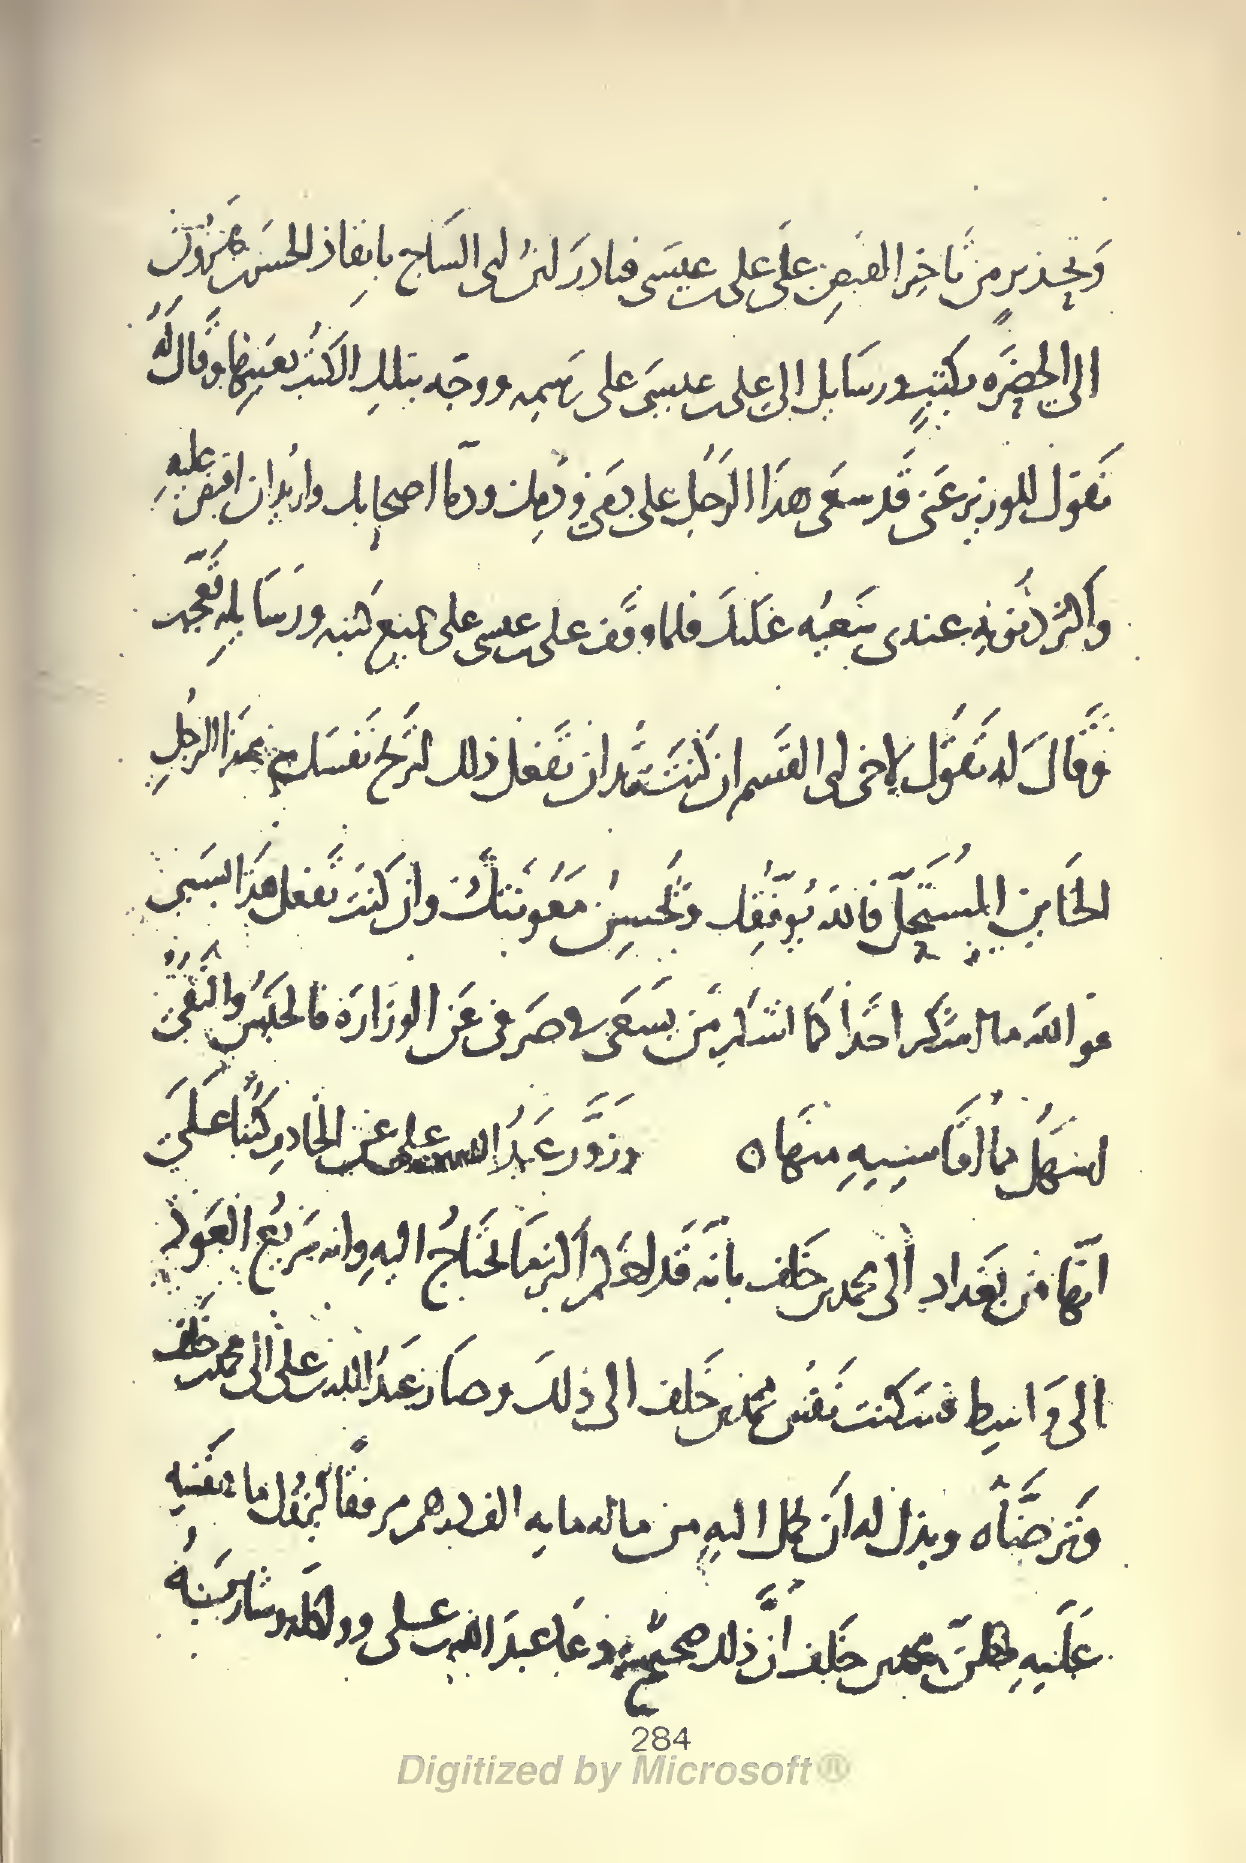 وتحذيره من تاخر القبض على علي بن عيسى فبادر ابن ابي الساج بانفاذ الحسن بن هرون
الى الحضرة بكتب ورسايل الى علي بن عيسى على رسمه ووجه بتلك الكتب بعينها وقال له
تقول للوزير عني قد سعى هذا الرجل على دمي ودمك ودما اصحابك واريد ان اقبض عليه
عندى متعبه عليك فلما وقف علي بن عيسى على جميع كتبه ورسايله تعجب
وقال له تقول لاخي ابي القسم ان كنت تريد ان تفعل ذلك لتريح نفسك من هذا الرجل
الخاين المستحل فالله يوفقك ويحسن معونتك وان كنت تفعل هذا بسببي
فوالله ما اشكر احدا كما اشكر من يسعى في صرفي عن الوزارة فالحبس والنفي
اسهل مما اقاسيه منها ه وزور عبد الله بن علي عن الخادم كتبا على
انها من بغداد الى محمد بن خلف بانه قد احكم اكثر ما يحتاج اليه وانه سريع العود
الى واسط فسكنت نفس محمد بن خلف الى ذلك وصار عبد الله بن علي الى محمد بن خلف
وترضاه وبذل له ان يحمل اليه من ماله مايه الف درهم مرفقا ليزول ما في نفسه
عليه فظن محمد بن خلف ان ذلك صحيح ودعا عبد الله بن علي وواكله وشاربه
284
Digitized by Microsoft®